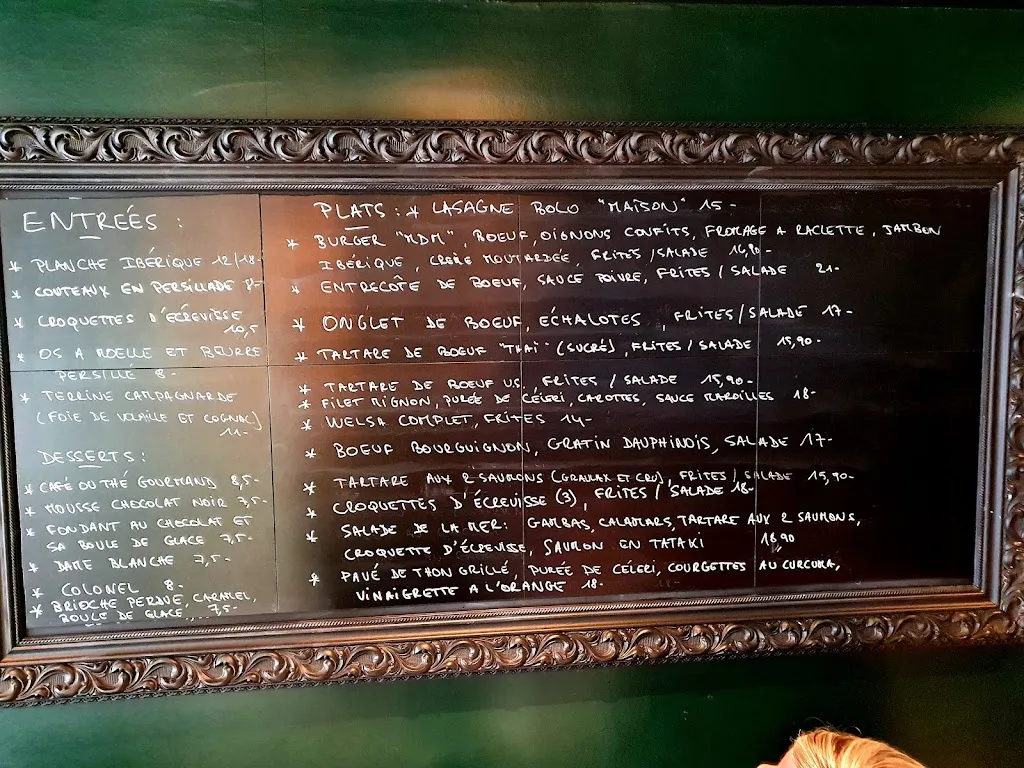 ENTREÉS :
* PLANCHE IBÉRIQUE 12/18-
* COUTEAUX EN PERSILLADE 8-
* CROQUETTES D'ÉCREVISSE
10,5
* OS A MOELLE ET BEURRE
PERSILLÉ 8-
* TERRINE CAMPAGNARDE
(FOIE DE VOLAILLE ET COGNAC)
11-
DESSERTS :
* CAFÉ OU THÉ GOURMAND 8,5-
* MOUSSE CHOCOLAT NOIR 7,5-
* FONDANT AU CHOCOLAT ET
SA BOULE DE GLACE 7,5-
* DAME BLANCHE 7,5-
* COLONEL 8-
* BRIOCHE PERDUE, CARAMEL,
BOULE DE GLACE, 7,5-
PLATS : * LASAGNE BOLO "MAISON" 15-
* BURGER "MDM", BOEUF, OIGNONS CONFITS, FROMAGE A RACLETTE, JAMBON
IBÉRIQUE, CRÈME MOUTARDÉE, FRITES/SALADE 16,90-
* ENTRECÔTE DE BOEUF, SAUCE POIVRE, FRITES / SALADE 21-
* ONGLET DE BOEUF, ECHALOTES, FRITES/SALADE 17-
* TARTARE DE BOEUF "THAÏ" (SUCRÉ), FRITES / SALADE 15,90-
* TARTARE DE BOEUF US, FRITES / SALADE 15,90-
* FILET MIGNON, PURÉE DE CÉLERI, CAROTTES, SAUCE MAROILLES 18-
* WELSH COMPLET, FRITES 14-
* BOEUF BOURGUIGNON, GRATIN DAUPHINOIS, SALADE 17-
* TARTARE AUX 2 SAUMONS (GRAVLAX ET CRU), FRITES / SALADE 15,90-
* CROQUETTES D'ÉCREVISSE (3), FRITES / SALADE 18-
* SALADE DE LA MER : GAMBAS, CALAMARS, TARTARE AUX 2 SAUMONS,
CROQUETTE D'ÉCREVISSE, SAUMON EN TATAKI 18,90
* PAVÉ DE THON GRILLÉ, PURÉE DE CÉLERI, COURGETTES AU CURCUMA,
VINAIGRETTE A L'ORANGE 18-